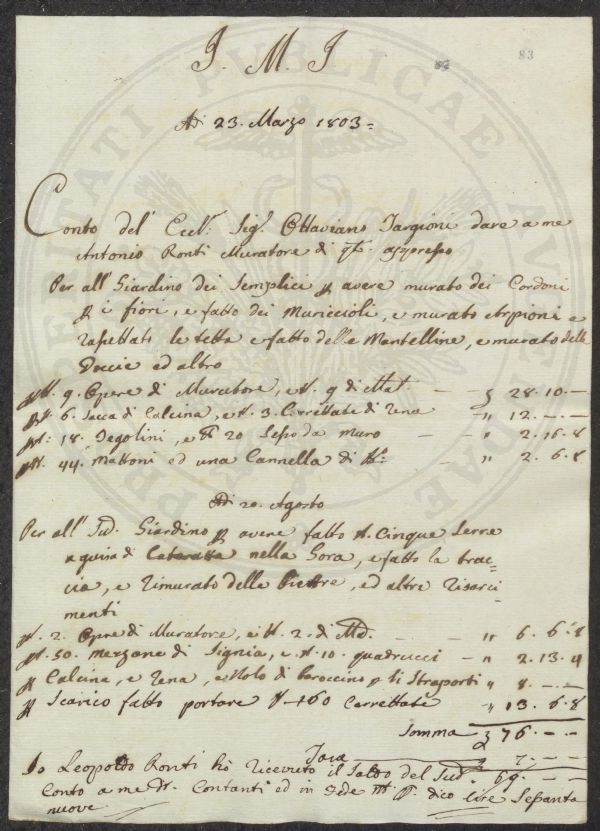 83
J. M. J
Adì 23. Marzo 1803 =
Conto del' Eccl: Sig: Ottaviano Targioni dare a me
Antonio Ronti Muratore di
Per all' Giardino dei Semplici p avere murato dei Cordoni
p i fiori, e fatto dei Muriccioli, e murato Arpioni e
raspettati le tetta e fatto delle Mantelline, e murato delle
Doccie ed altro
pN. 9. Opere di Muratore, e N. 9 di Mat. — £ 28. 10. —
pN. 6. Sacca di Calcina, e N. 3. Carrettate di rena " 12. — . —
pN: 18. Tegolini, e 20 Gesso da muro — " 2. 16. 8
pN. 44. Mattoni ed una Cannella di — " 2. 6. 8
Adì 20. Agosto
Per all' Sud. Giardino p avere fatto N. Cinque Serre
a guisa di Cateratta nella Gora, e fatto la trac=
cia, e rimurato delle Pietre, ed altre risarci=
menti
pN. 2. Opre di Muratore, e N. 2. di — " 6. 6. 8
pN. 50. Mezzane di Signia, e N. 10. quadrucci — " 2. 13. 4
p Calcina, e rena, e Nolo di baroccino p li Strasporti " 8. — . —
p Scarico fatto portare N — 160 Carrettate " 13. 6. 8
Somma £ 76. — . —
Tara 7. — . —
69. — . —
Io Leopoldo Ronti hò ricevuto il Saldo del Sud.
Conto a me Contanti ed in fede dico Lire Sessanta
nuove
PROSPERITATI PUBLICAE AUGENDAE